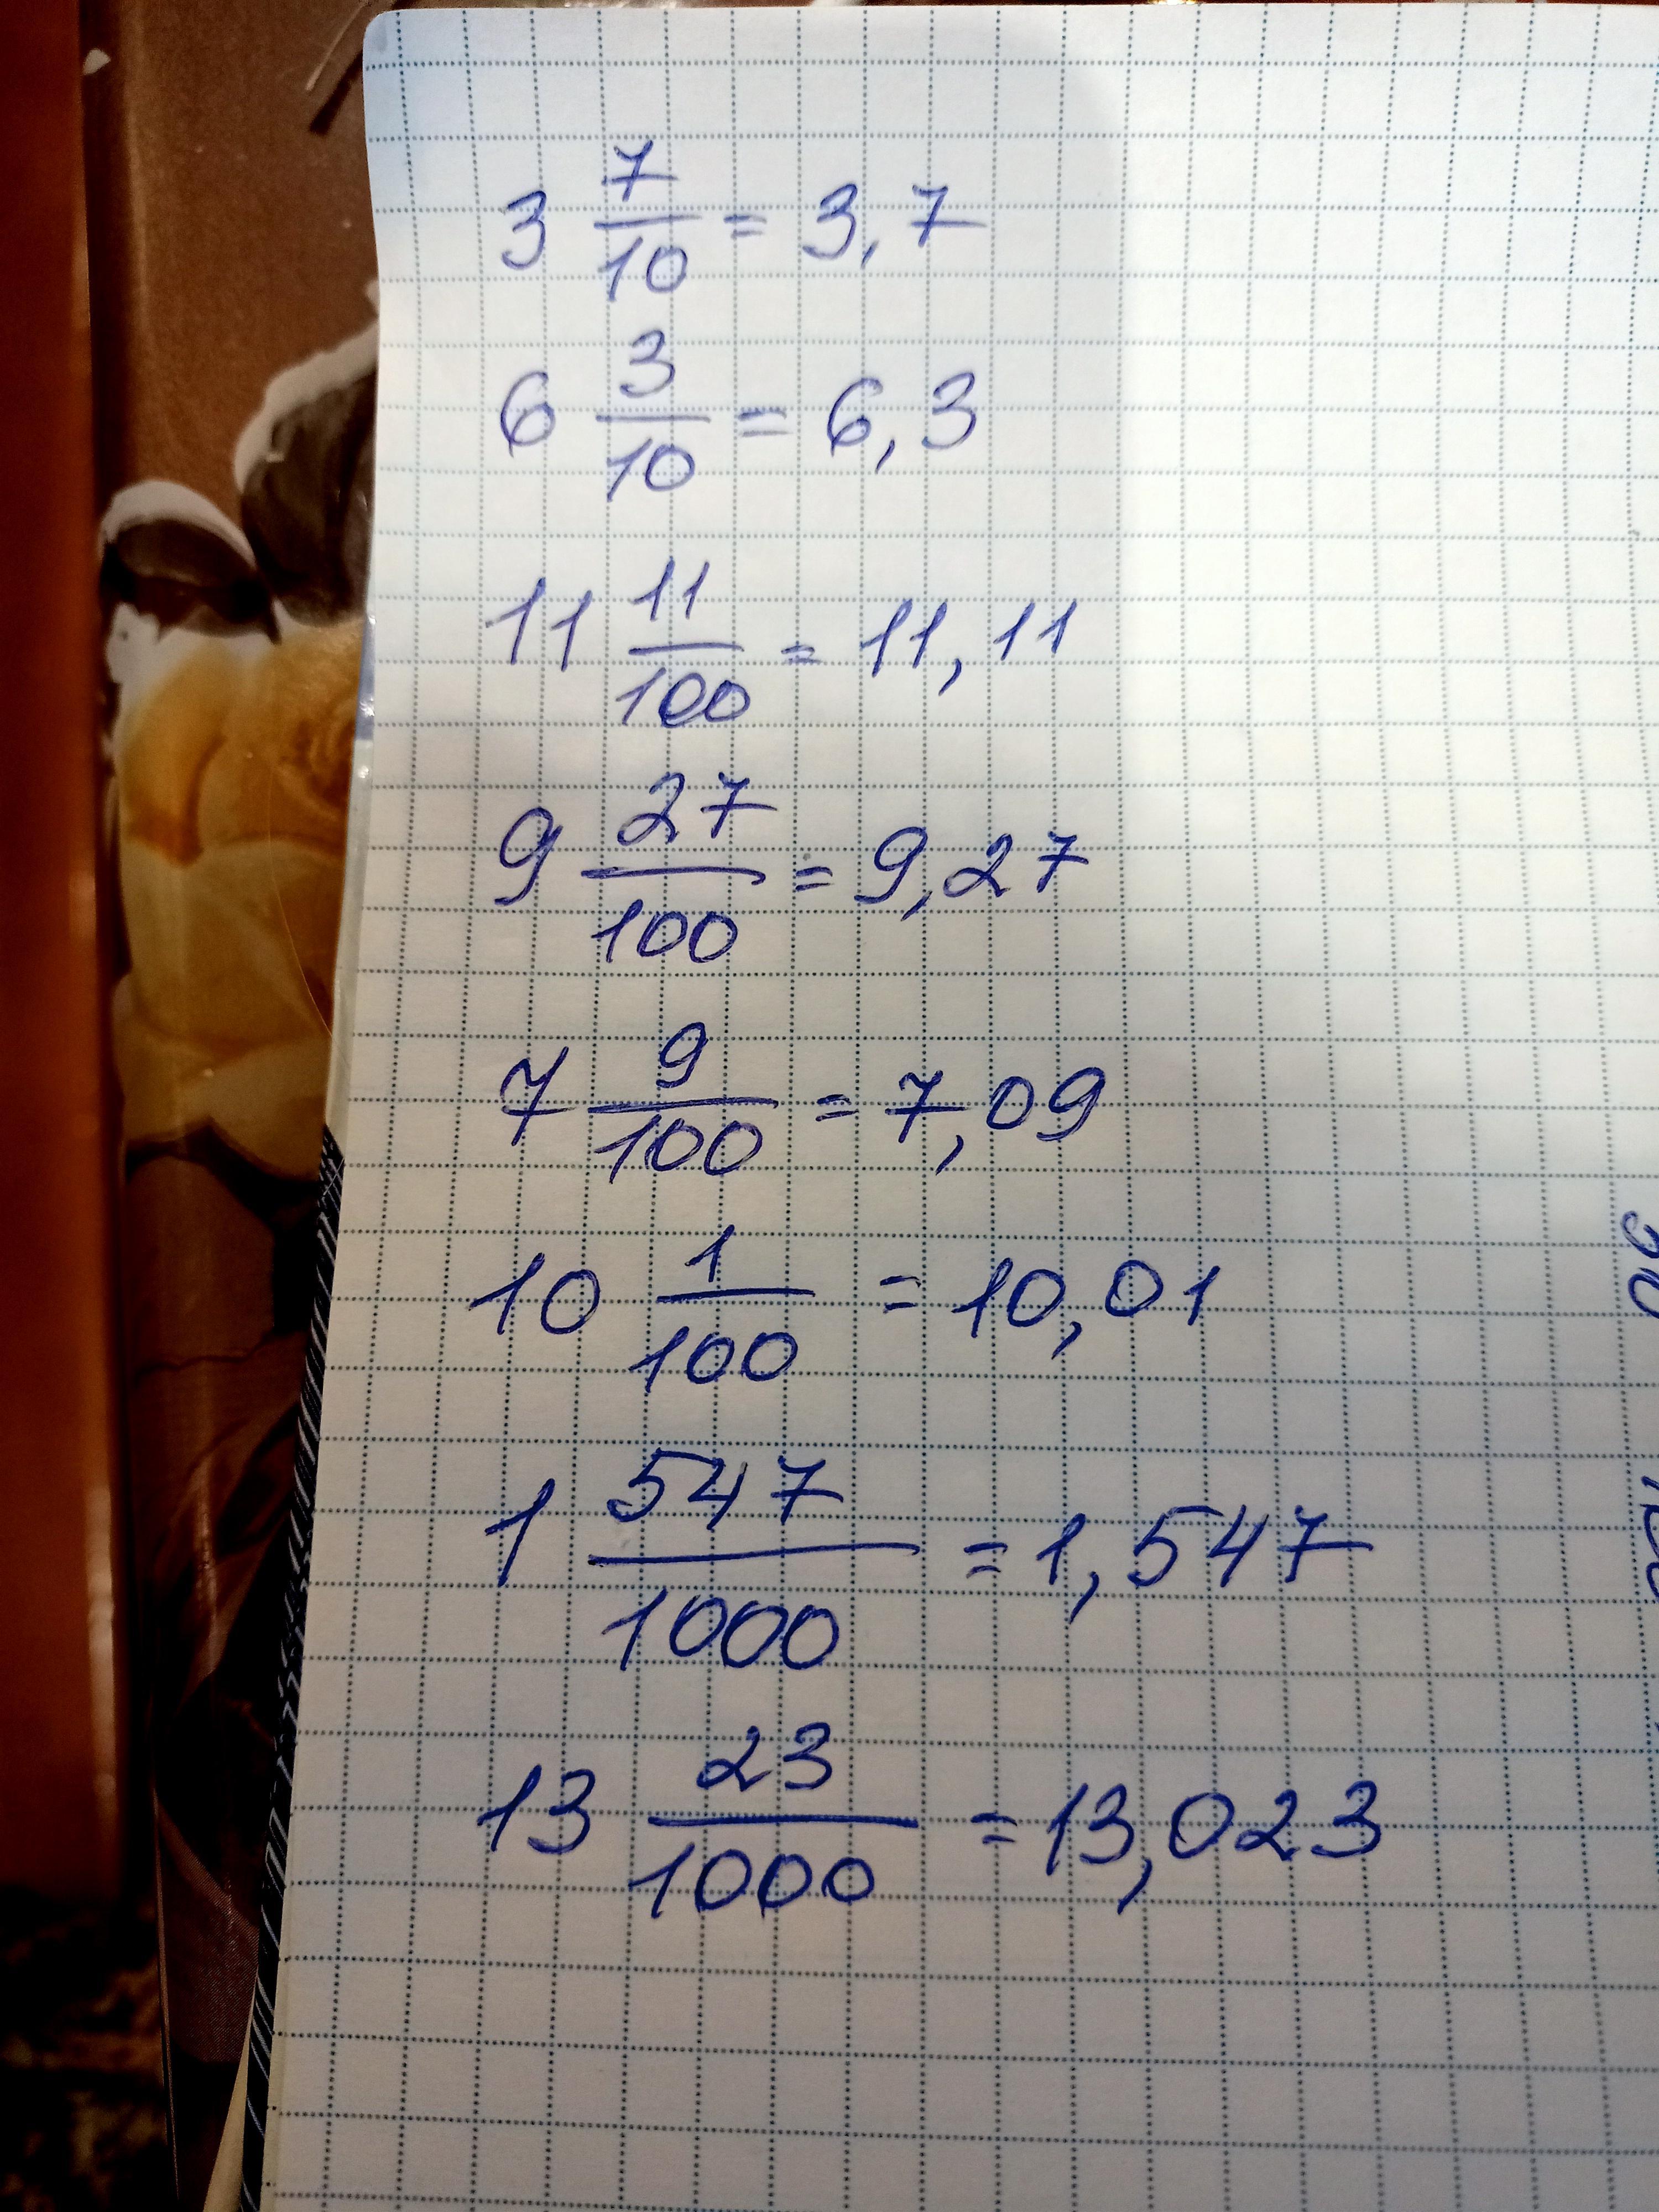 3 7/10 = 3,7
6 3/10 = 6,3
11 11/100 = 11,11
9 27/100 = 9,27
7 9/100 = 7,09
10 1/100 = 10,01
1 547/1000 = 1,547
13 23/1000 = 13,023